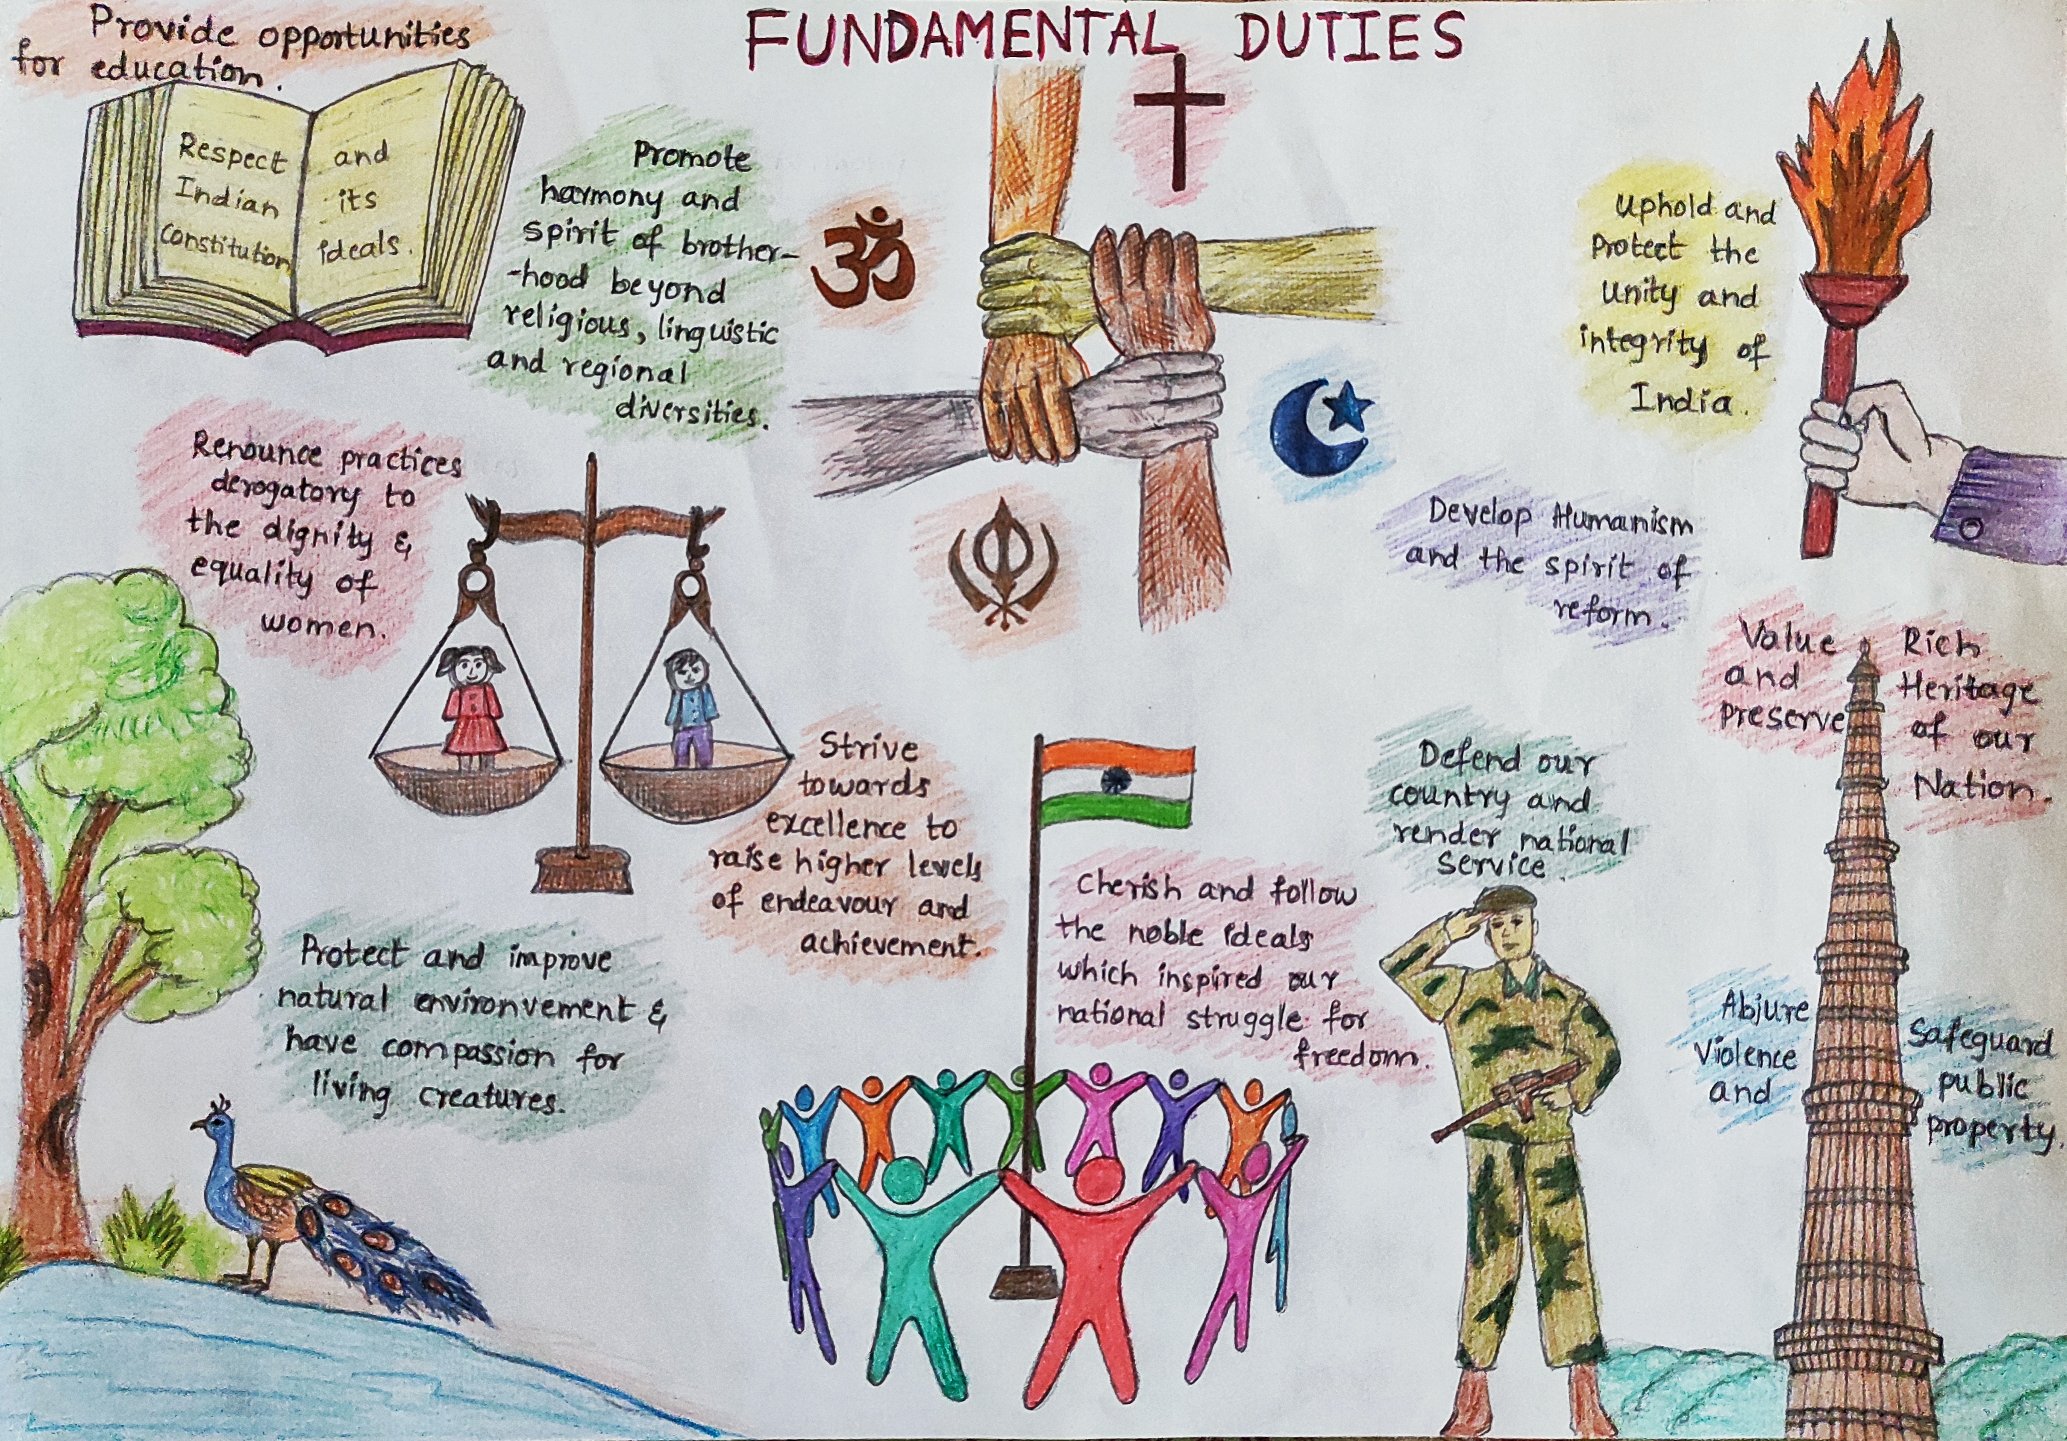 FUNDAMENTAL DUTIES
Provide opportunities
for education.
Respect
Indian
Constitution
and
its
ideals.
Promote
harmony and
spirit of brother-
-hood beyond
religious, linguistic
and regional
diversities.
ॐ
Uphold and
Protect the
Unity and
integrity of
India.
Renounce practices
derogatory to
the dignity &
equality of
women.
Develop Humanism
and the spirit of
reform.
Value
and
Preserve
Rich
Heritage
of our
Nation.
Strive
towards
excellence to
raise higher levels
of endeavour and
achievement.
Defend our
country and
render national
Service.
Cherish and follow
the noble ideals
which inspired our
national struggle for
freedom.
Protect and improve
natural environvement &
have compassion for
living creatures.
Abjure
Violence
and
Safeguard
public
property.